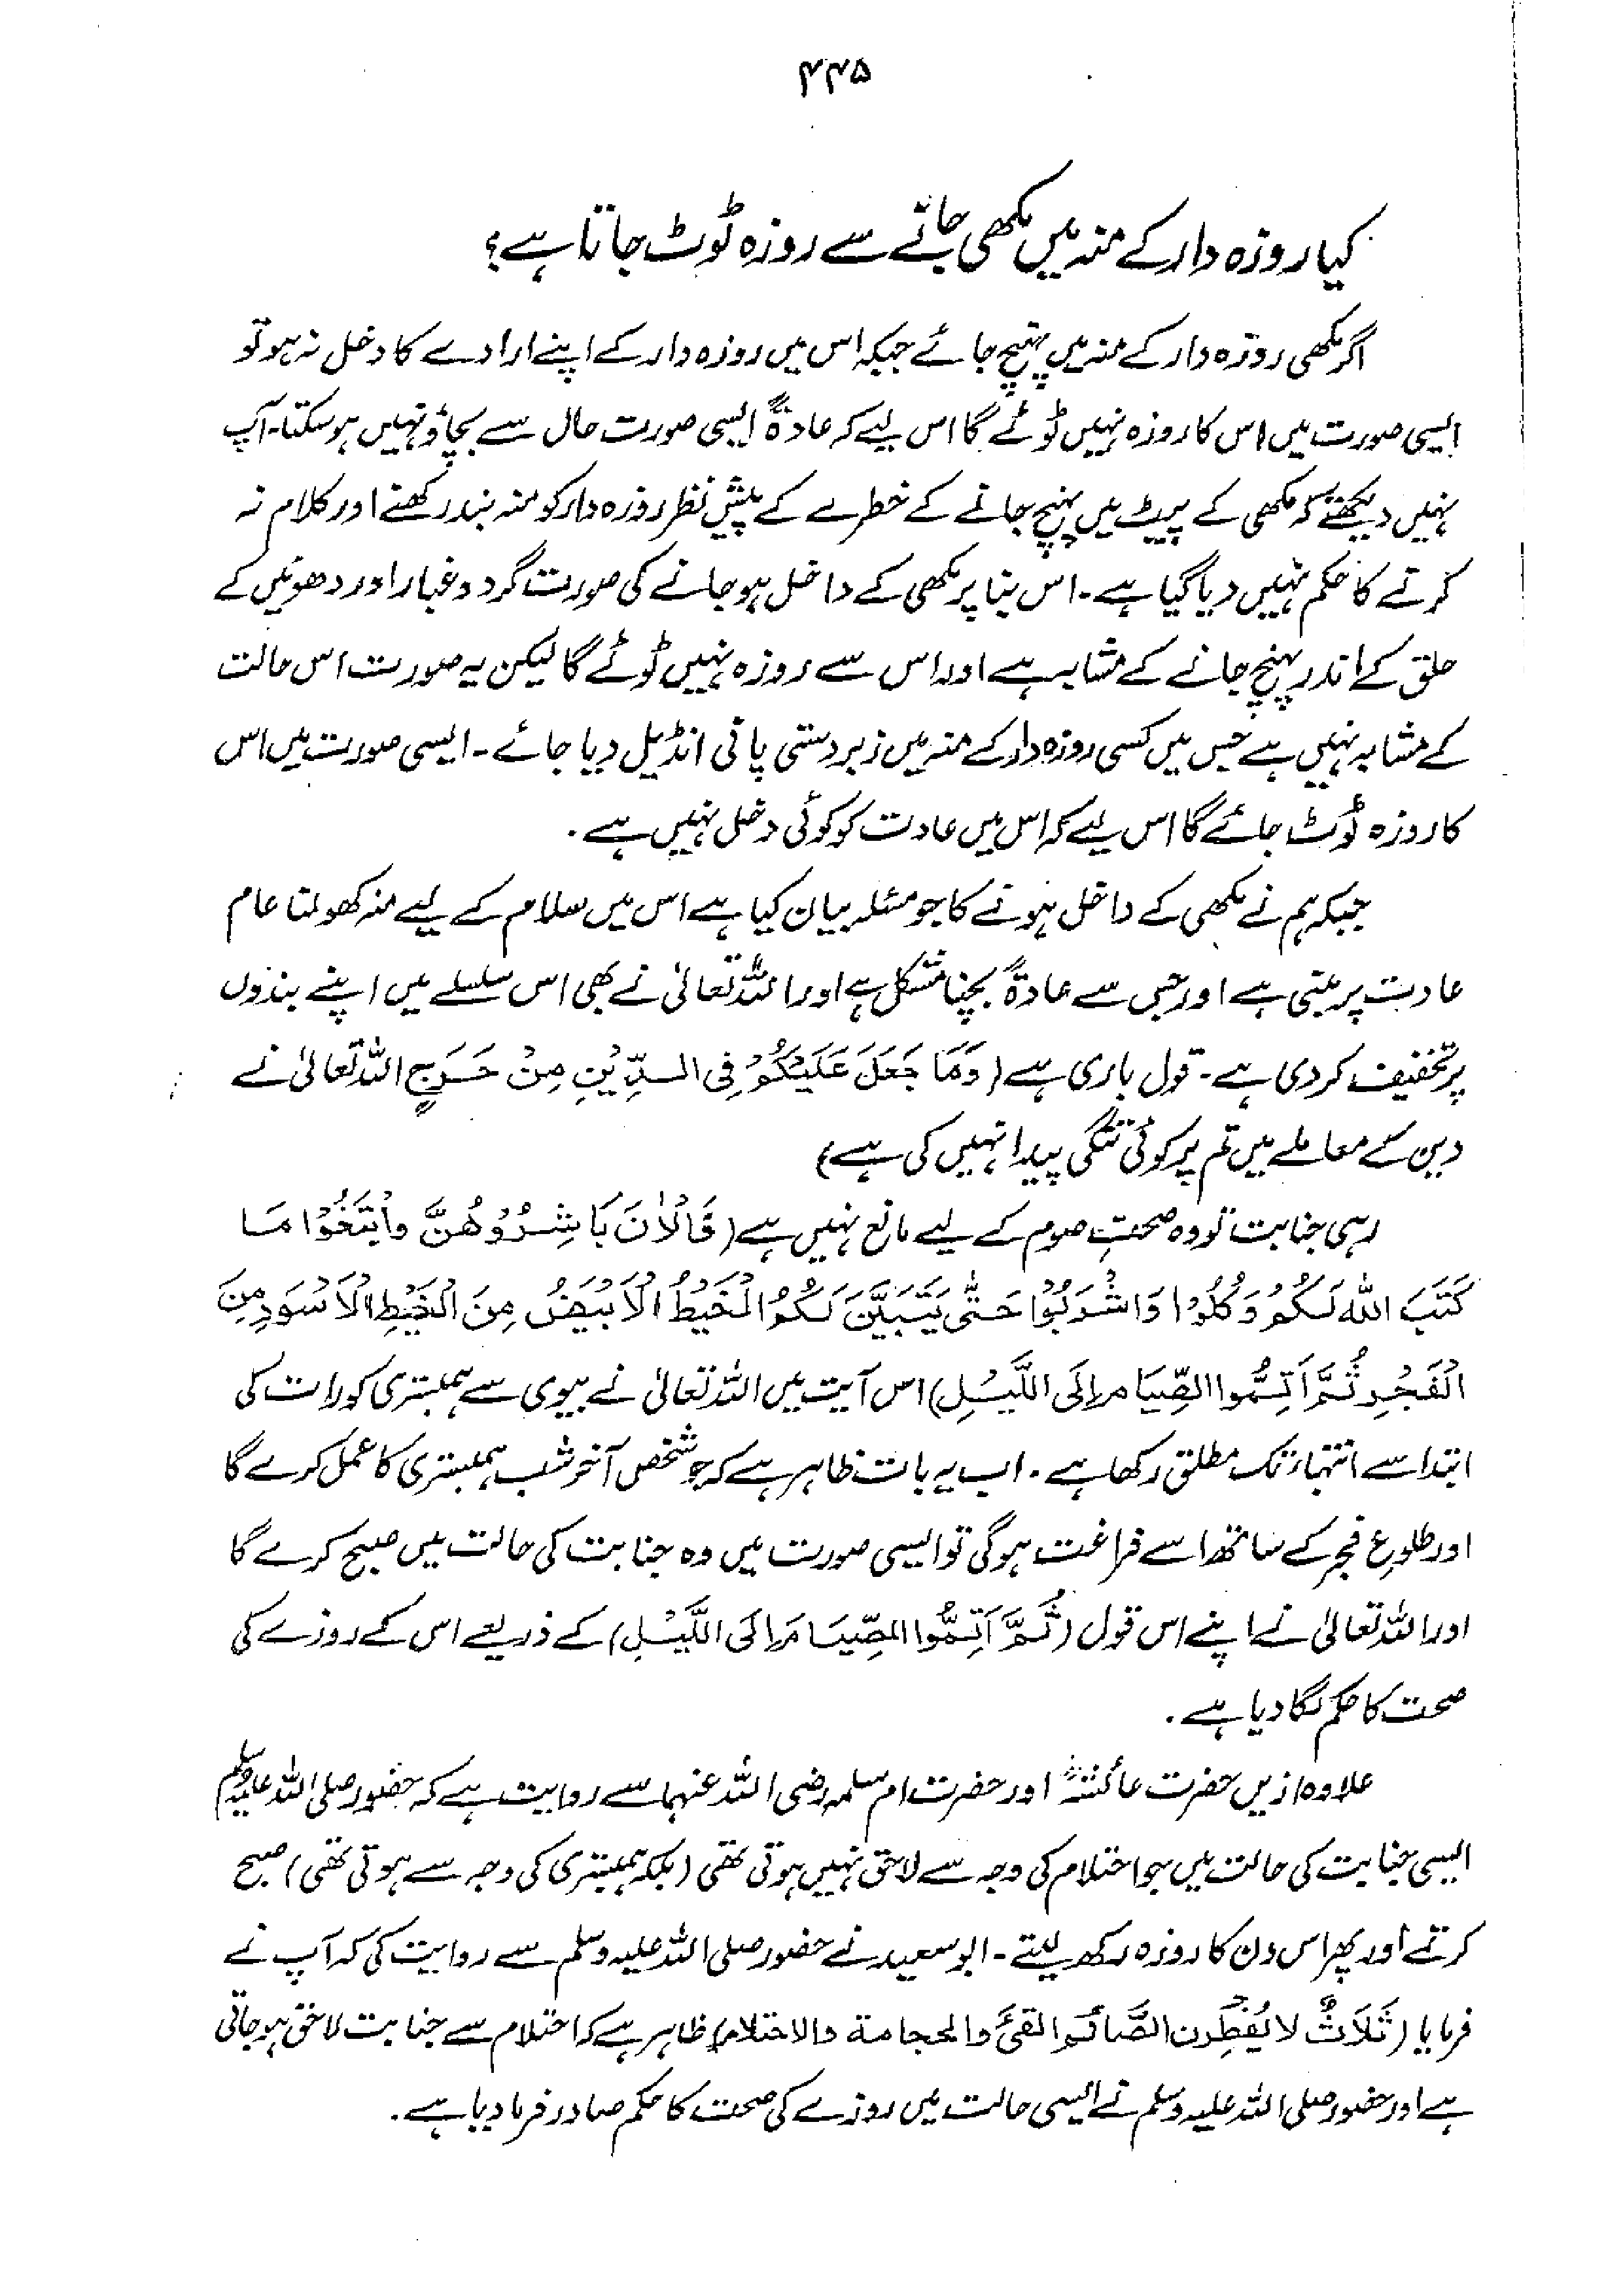 ۴۴۵
کیا روزہ دار کے منہ میں مکھی جانے سے روزہ ٹوٹ جاتا ہے؟
اگر مکھی روزہ دار کے منہ میں پہنچ جائے جبکہ اس میں روزہ دار کے اپنے ارادے کا دخل نہ ہو تو
ایسی صورت میں اس کا روزہ نہیں ٹوٹے گا اس لیے کہ عادۃً ایسی صورت حال سے بچاؤ نہیں ہو سکتا۔ آپ
نہیں دیکھتے کہ مکھی کے پیٹ میں پہنچ جانے کے خطرے کے پیش نظر روزہ دار کو منہ بند رکھنے اور کلام نہ
کرنے کا حکم نہیں دیا گیا ہے۔ اس بنا پر مکھی کے داخل ہو جانے کی صورت گرد و غبار اور دھوئیں کے
حلق کے اندر پہنچ جانے کے مشابہ ہے اور اس سے روزہ نہیں ٹوٹے گا لیکن یہ صورت اس حالت
کے مشابہ نہیں ہے جس میں کسی روزہ دار کے منہ میں زبردستی پانی انڈیل دیا جائے۔ ایسی صورت میں اس
کا روزہ ٹوٹ جائے گا اس لیے کہ اس میں عادت کو کوئی دخل نہیں ہے۔
جبکہ ہم نے مکھی کے داخل ہونے کا جو مسئلہ بیان کیا ہے اس میں سلام کے لیے منہ کھولنا عام
عادت پر مبنی ہے اور جس سے عادۃً بچنا مشکل ہے اور اللہ تعالیٰ نے بھی اس سلسلے میں اپنے بندوں
پر تخفیف کر دی ہے۔ قول باری ہے (وَمَا جَعَلَ عَلَيْكُمْ فِي الدِّيْنِ مِنْ حَرَجٍ اللہ تعالیٰ نے
دین کے معاملے میں تم پر کوئی تنگی پیدا نہیں کی ہے)
رہی جنابت تو وہ صحتِ صوم کے لیے مانع نہیں ہے (فَالْاٰنَ بَاشِرُوْهُنَّ وابْتَغُوْا مَا
كَتَبَ اللّٰهُ لَكُمْ وَكُلُوْا وَاشْرَبُوْا حَتّٰى يَتَبَيَّنَ لَكُمُ الْخَيْطُ الْاَبْيَضُ مِنَ الْخَيْطِ الْاَسْوَدِ مِنَ
الْفَجْرِ ثُمَّ اَتِمُّوا الصِّيَامَ اِلَى اللَّيْلِ) اس آیت میں اللہ تعالیٰ نے بیوی سے ہمبستری کو رات کی
ابتدا سے انتہا تک مطلق رکھا ہے۔ اب یہ بات ظاہر ہے کہ جو شخص آخر شب ہمبستری کا عمل کرے گا
اور طلوعِ فجر کے ساتھ اسے فراغت ہو گی تو ایسی صورت میں وہ جنابت کی حالت میں صبح کرے گا
اور اللہ تعالیٰ نے اپنے اس قول (ثُمَّ اَتِمُّوا الصِّيَامَ اِلَى اللَّيْلِ) کے ذریعے اس کے روزے کی
صحت کا حکم لگا دیا ہے۔
علاوہ ازیں حضرت عائشہؓ اور حضرت ام سلمہ رضی اللہ عنہما سے روایت ہے کہ حضور صلی اللہ علیہ وسلم
ایسی جنابت کی حالت میں جو احتلام کی وجہ سے لاحق نہیں ہوتی تھی (بلکہ ہمبستری کی وجہ سے ہوتی تھی) صبح
کرتے اور پھر اس دن کا روزہ رکھ لیتے۔ ابو سعید نے حضور صلی اللہ علیہ وسلم سے روایت کی کہ آپ نے
فرمایا (ثَلَاثٌ لا يُفْطِرن الصَّائم القیءُ والحجامة والاحتلام) ظاہر ہے کہ احتلام سے جنابت لاحق ہو جاتی
ہے اور حضور صلی اللہ علیہ وسلم نے ایسی حالت میں روزے کی صحت کا حکم صادر فرما دیا ہے۔